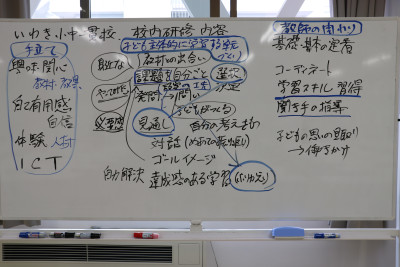 いわき小中一貫校 校内研修内容
手立て
興味関心
教材・教具
自己有用感
自信
体験
ICT
子どもが主体的に学習する単元
づくり
教材との出合い
課題を自分ごと
選択
決定
発問
問い
必要感
見通し
子どもがつくる
自分の考えをもつ
対話
ゴールイメージ
自力解決
達成感のある学習
(ふりかえり)
教師の関わり
基礎・基本の定着
コーディネート
学習スキル 習得
聞き手の指導
子どもの思いの見取り
→働きかけ